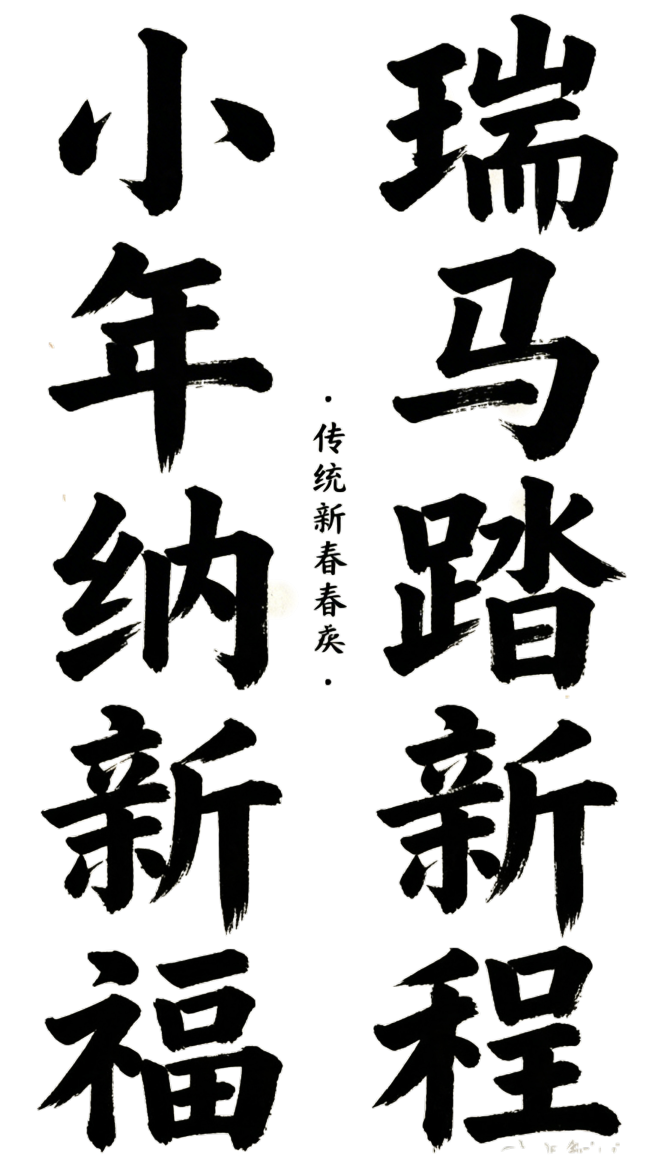 瑞马踏新程
·传统新春春·
小年纳新福